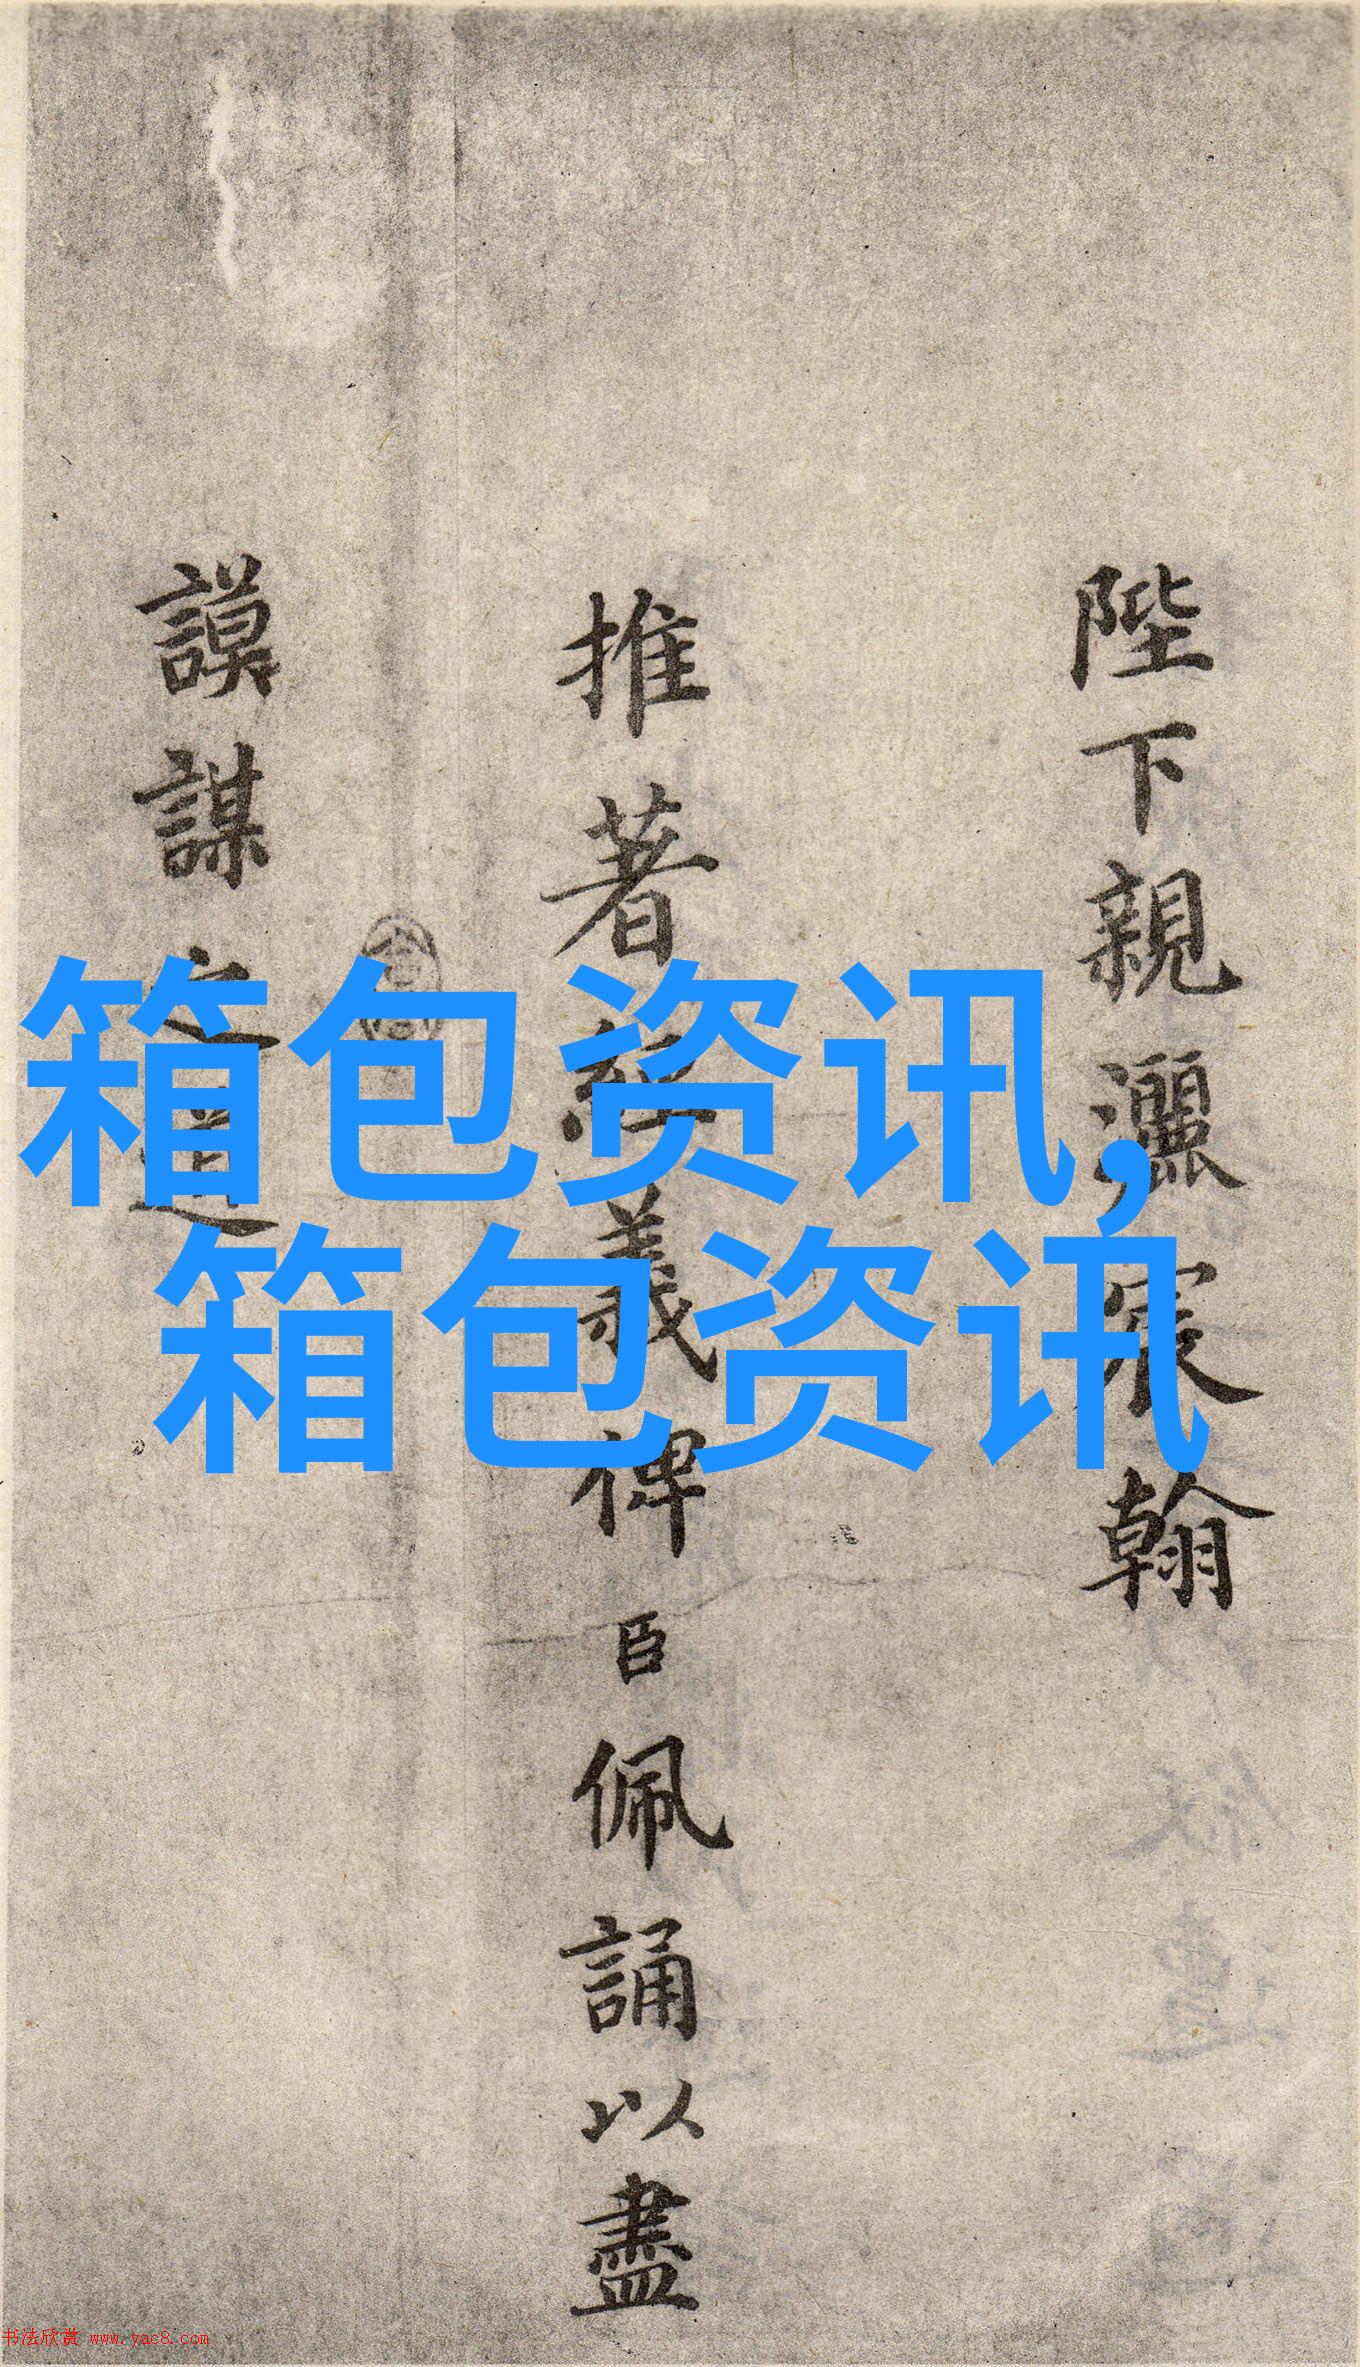 陛下親灑宸翰
推著經義俾臣佩誦以盡
謨謀之道
箱包资讯,
箱包资讯
书法欣赏 www.yac8.com